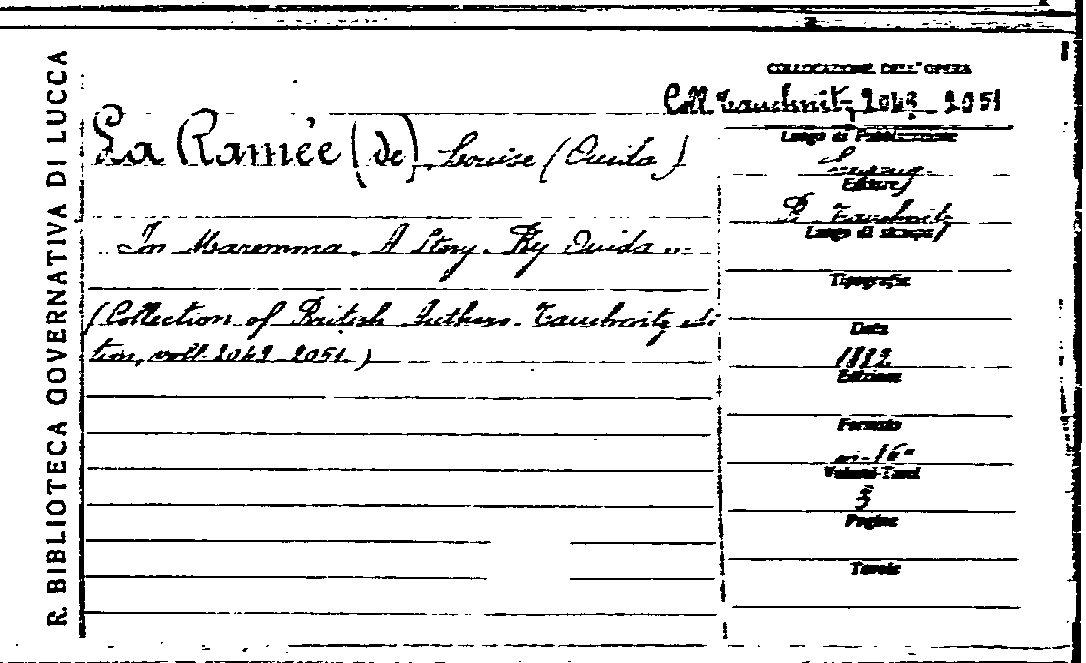 R. BIBLIOTECA GOVERNATIVA DI LUCCA
La Ramée (de) Louise (Ouida)
In Maremma. A Story. By Ouida ...
(Collection of British Authors. Tauchnitz edi
tion, voll. 2049-2051.)
COLLOCAZIONE DELL'OPERA
Coll. Tauchnitz 2049-2051
Luogo di Pubblicazione
Editore
B. Tauchnitz
Luogo di stampa
Tipografia
Data
1882
Edizione
Formato
in-16°
Volumi-Tomi
3
Pagine
Tavole